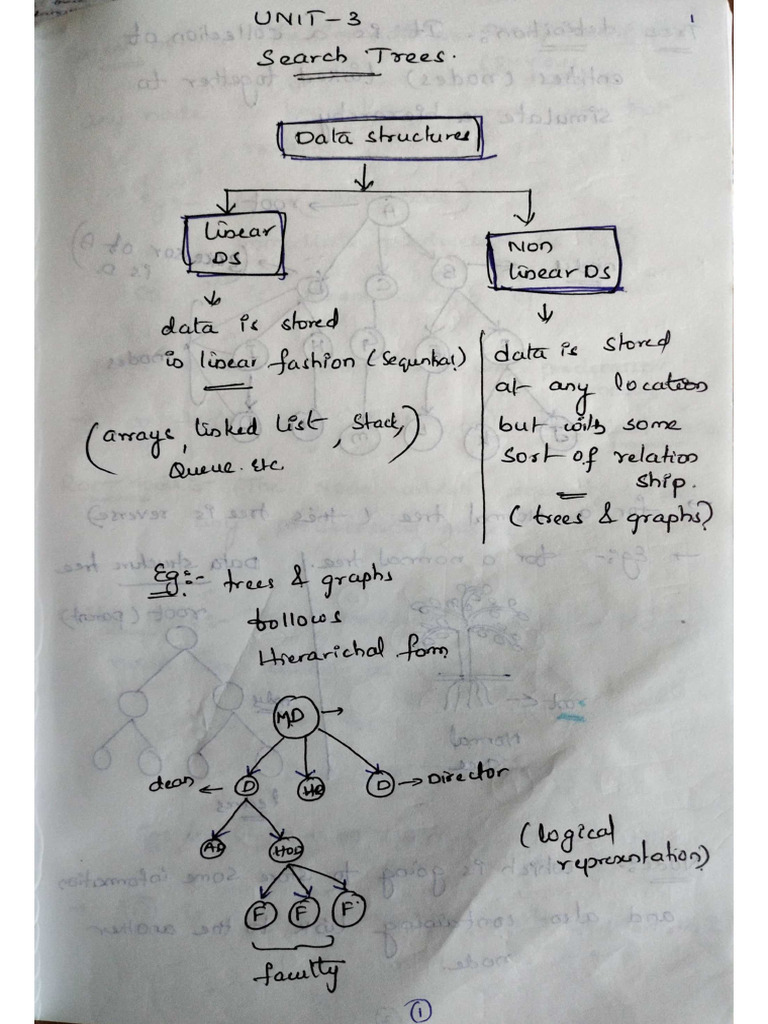 1
UNIT-3
Search Trees.
Data structures
Linear
DS
Non
linear DS
data is stored
in linear fashion (Sequntial)
(arrays, linked list, Stack,
Queue. etc)
data is stored
at any location
but with some
sort of relation
ship.
(trees & graphs)
Eg:- trees & graphs
follows
Hierarichal form
MD
dean ← D HR D → Director
AD HOD
F F F
faculty
(logical
represntation)
1